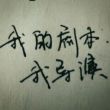 我的剧本.
我导演